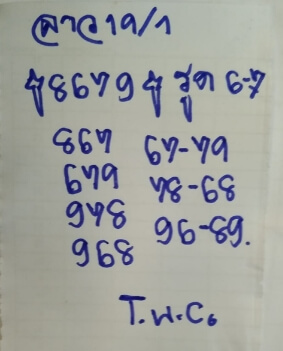 ลาว 19/1
8679 รูด 6-7
867 67-79
679 78-68
978 96-89.
968
T.พ.C.